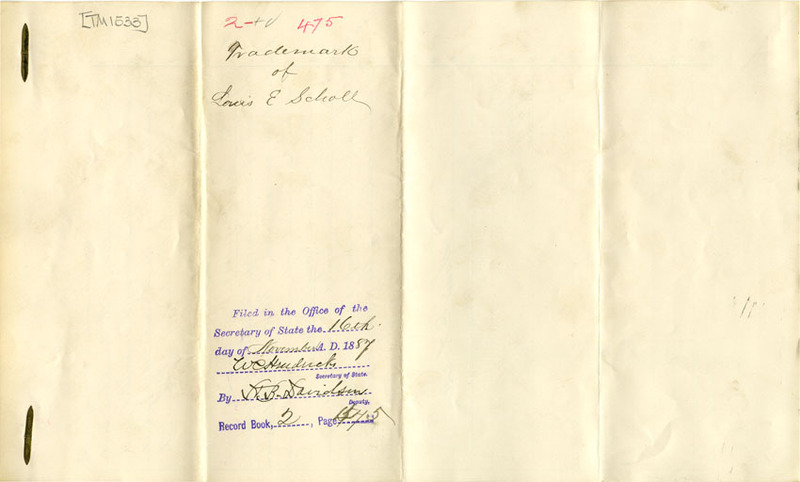 [TM1533]
475
Trademark
of
Louis E Scholl
Filed in the Office of the
Secretary of State the 16th
day of November A. D. 1887
W C Hendricks
Secretary of State.
By Davidson
Deputy.
Record Book, 2, Page